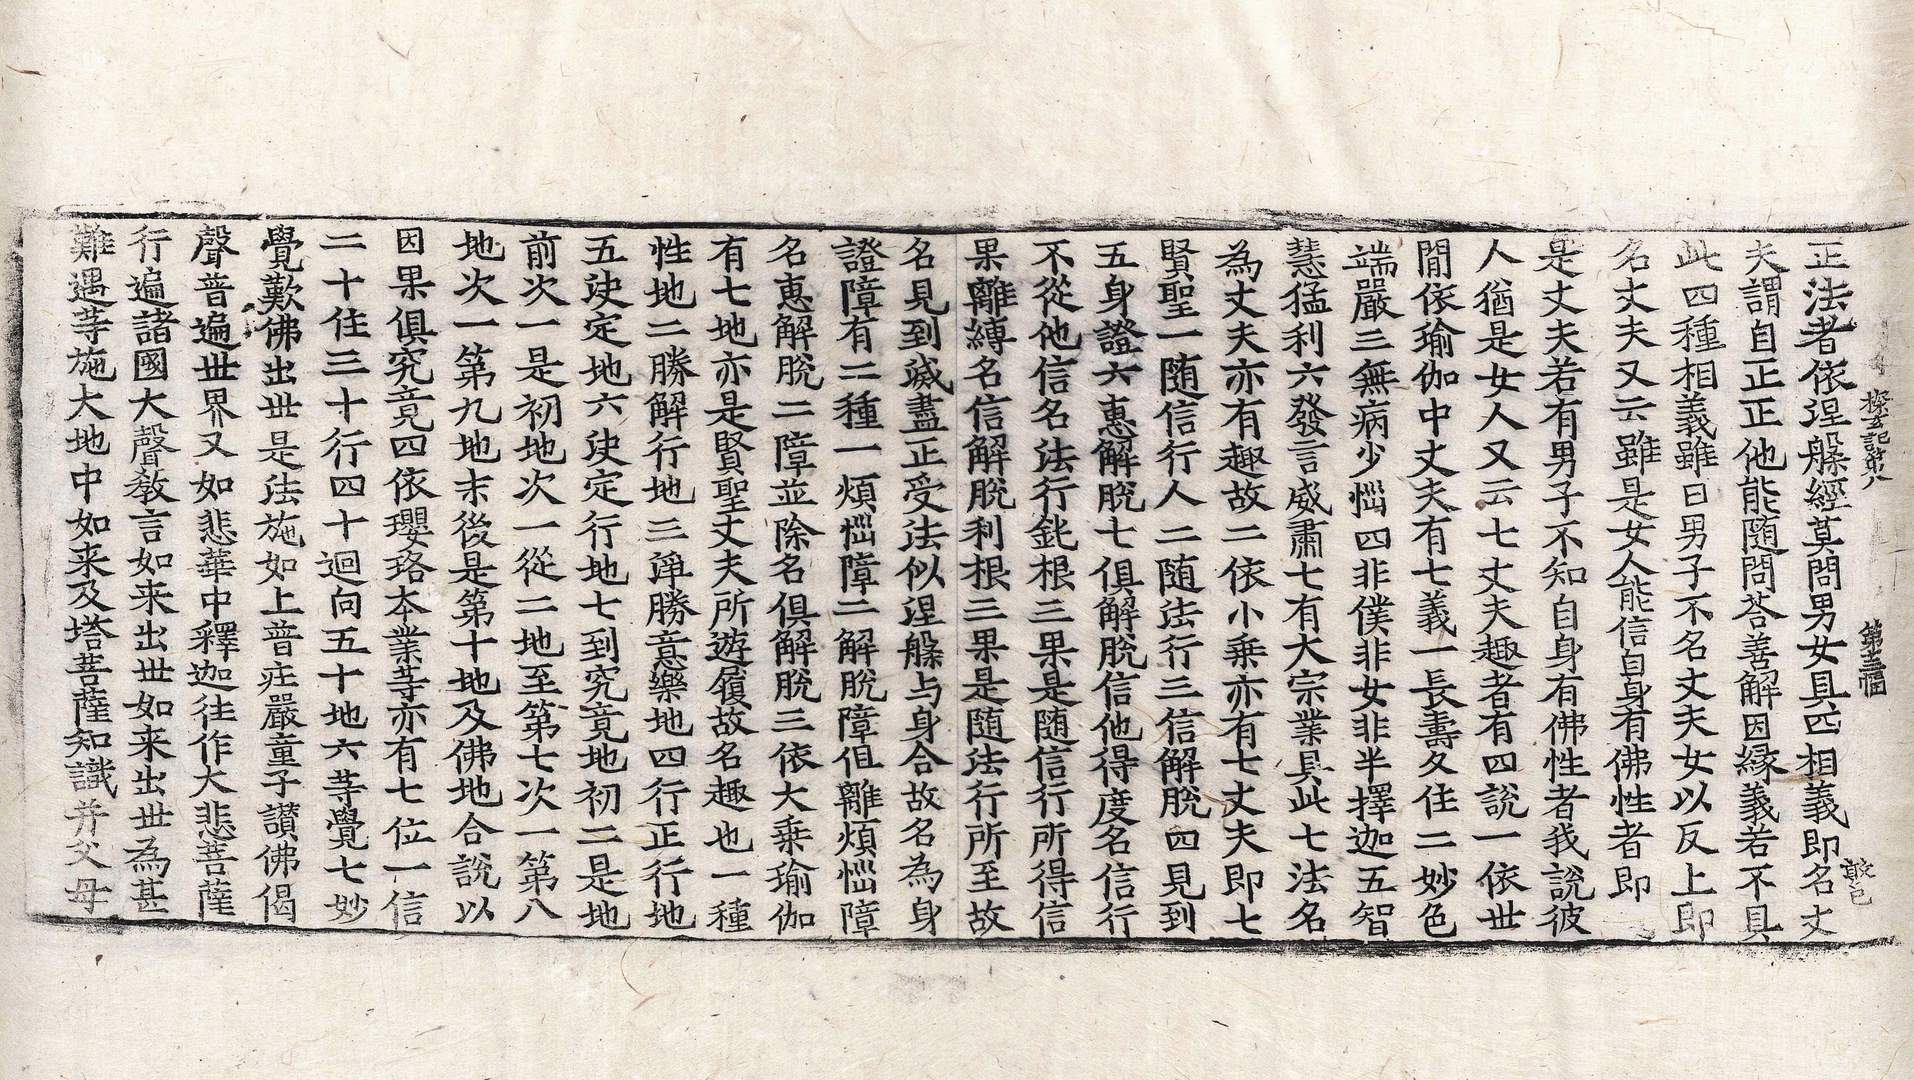 探玄記第八
第三幅
正法者依涅槃經莫問男女具匹相義即名丈
夫謂自正正他能随問荅善解因緣義若不具
此四種相義雖曰男子不名丈夫女以反上即
名丈夫又云雖是女人能信自身有佛性者即
是丈夫若有男子不知自身有佛性者我說彼
人猶是女人又云七丈夫趣者有四說一依世
間依瑜伽中丈夫有七義一長壽久住二妙色
端嚴三無病少惱四非僕非女非半擇迦五智
慧猛利六發言威肅七有大宗業具此七法名
為丈夫亦有趣故二依小乗亦有七丈夫即七
賢聖一随信行人二随法行三信解脫四見到
五身證六惠解脫七俱解脫信他得度名信行
不從他信名法行鈍根三果是随信行所得信
果離縛名信解脫利根三果是随法行所至故
名見到滅盡正受法似涅槃与身合故名為身
證障有二種一煩惱障二解脫障伹離煩惱障
名惠解脫二障並除名俱解脫三依大乗瑜伽
有七地亦是賢聖丈夫所遊履故名趣也一種
性地二勝解行地三淨勝意樂地四行正行地
五決定地六決定行地七到究竟地初二是地
前次一是初地次一從二地至第七次一第八
地次一第九地末後是第十地及佛地合說以
因果俱究竟四依瓔珞本業等亦有七位一信
二十住三十行四十迴向五十地六等覺七妙
覺歎佛出世是法施如上普莊嚴童子讃佛偈
聲普遍世界又如悲華中釋迦往作大悲菩薩
行遍諸國大聲教言如来出世如来出世為甚
難遇等施大地中如来及塔菩薩知識并父母